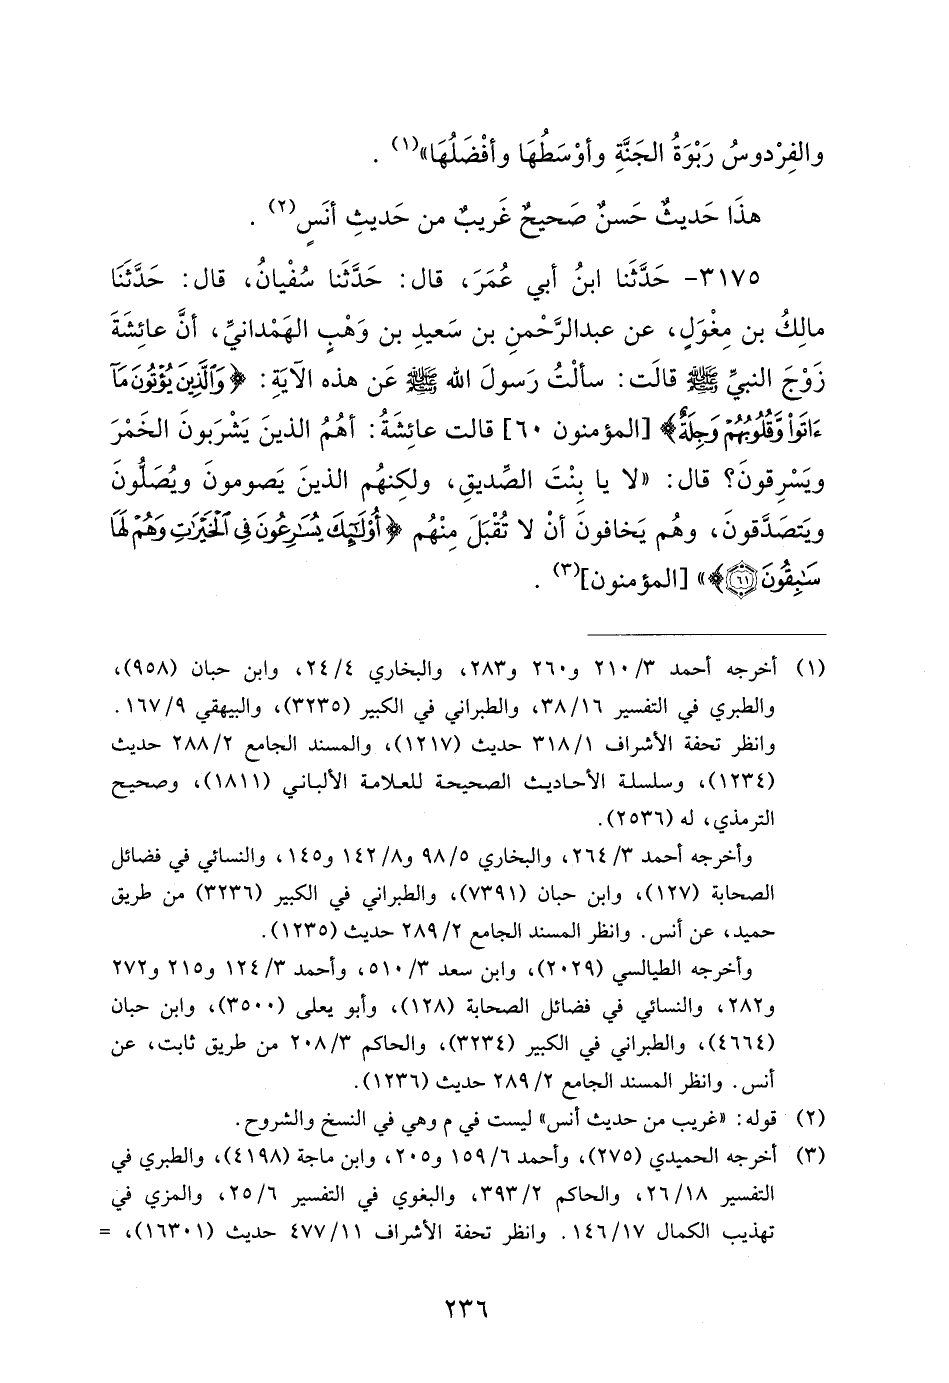 والفِرْدوسُ رَبْوَةُ الجَنَّةِ وأوْسَطُها وأفْضَلُهَا»(١) .
هذَا حَديثٌ حَسنٌ صَحيحٌ غَريبٌ من حَديثِ أنَسٍ(٢) .
٣١٧٥- حَدَّثَنا ابنُ أبي عُمَرَ، قال: حَدَّثَنا سُفْيانُ، قال: حَدَّثَنَا
مالِكُ بن مِغْوَلٍ، عن عبدالرَّحْمنِ بن سَعيدِ بن وَهْبٍ الهَمْدانيِّ، أنَّ عائِشَةَ
زَوْجَ النبيِّ ﷺ قالَت: سألْتُ رَسولَ الله ﷺ عَن هذه الآيَةِ: ﴿وَٱلَّذِينَ يُؤْتُونَ مَآ
ءَاتَواْ وَّقُلُوبُهُمْ وَجِلَةٌ﴾ [المؤمنون ٦٠] قالت عائِشَةُ: أهُمُ الذينَ يَشْرَبونَ الخَمْرَ
ويَسْرِقونَ؟ قال: «لا يا بِنْتَ الصِّديقِ، ولكِنهُم الذينَ يَصومونَ ويُصَلُّونَ
ويَتصَدَّقونَ، وهُم يَخافونَ أنْ لا تُقْبَلَ مِنْهُم ﴿أُوْلَٰٓئِكَ يُسَٰرِعُونَ فِى ٱلْخَيْرَٰتِ وَهُمْ لَهَا
سَٰبِقُونَ ٦١﴾» [المؤمنون](٣) .
(١) أخرجه أحمد ٣/ ٢١٠ و٢٦٠ و٢٨٣، والبخاري ٤/ ٢٤، وابن حبان (٩٥٨)،
والطبري في التفسير ١٦/ ٣٨، والطبراني في الكبير (٣٢٣٥)، والبيهقي ٩/ ١٦٧ .
وانظر تحفة الأشراف ١/ ٣١٨ حديث (١٢١٧)، والمسند الجامع ٢/ ٢٨٨ حديث
(١٢٣٤)، وسلسلة الأحاديث الصحيحة للعلامة الألباني (١٨١١)، وصحيح
الترمذي، له (٢٥٣٦).
وأخرجه أحمد ٣/ ٢٦٤، والبخاري ٥/ ٩٨ و٨/ ١٤٢ و١٤٥، والنسائي في فضائل
الصحابة (١٢٧)، وابن حبان (٧٣٩١)، والطبراني في الكبير (٣٢٣٦) من طريق
حميد، عن أنس. وانظر المسند الجامع ٢/ ٢٨٩ حديث (١٢٣٥).
وأخرجه الطيالسي (٢٠٢٩)، وابن سعد ٣/ ٥١٠، وأحمد ٣/ ١٢٤ و٢١٥ و٢٧٢
و٢٨٢، والنسائي في فضائل الصحابة (١٢٨)، وأبو يعلى (٣٥٠٠)، وابن حبان
(٤٦٦٤)، والطبراني في الكبير (٣٢٣٤)، والحاكم ٣/ ٢٠٨ من طريق ثابت، عن
أنس. وانظر المسند الجامع ٢/ ٢٨٩ حديث (١٢٣٦).
(٢) قوله: «غريب من حديث أنس» ليست في م وهي في النسخ والشروح.
(٣) أخرجه الحميدي (٢٧٥)، وأحمد ٦/ ١٥٩ و٢٠٥، وابن ماجة (٤١٩٨)، والطبري في
التفسير ١٨/ ٢٦، والحاكم ٢/ ٣٩٣، والبغوي في التفسير ٦/ ٢٥، والمزي في
تهذيب الكمال ١٧/ ١٤٦. وانظر تحفة الأشراف ١١/ ٤٧٧ حديث (١٦٣٠١)، =
٢٣٦